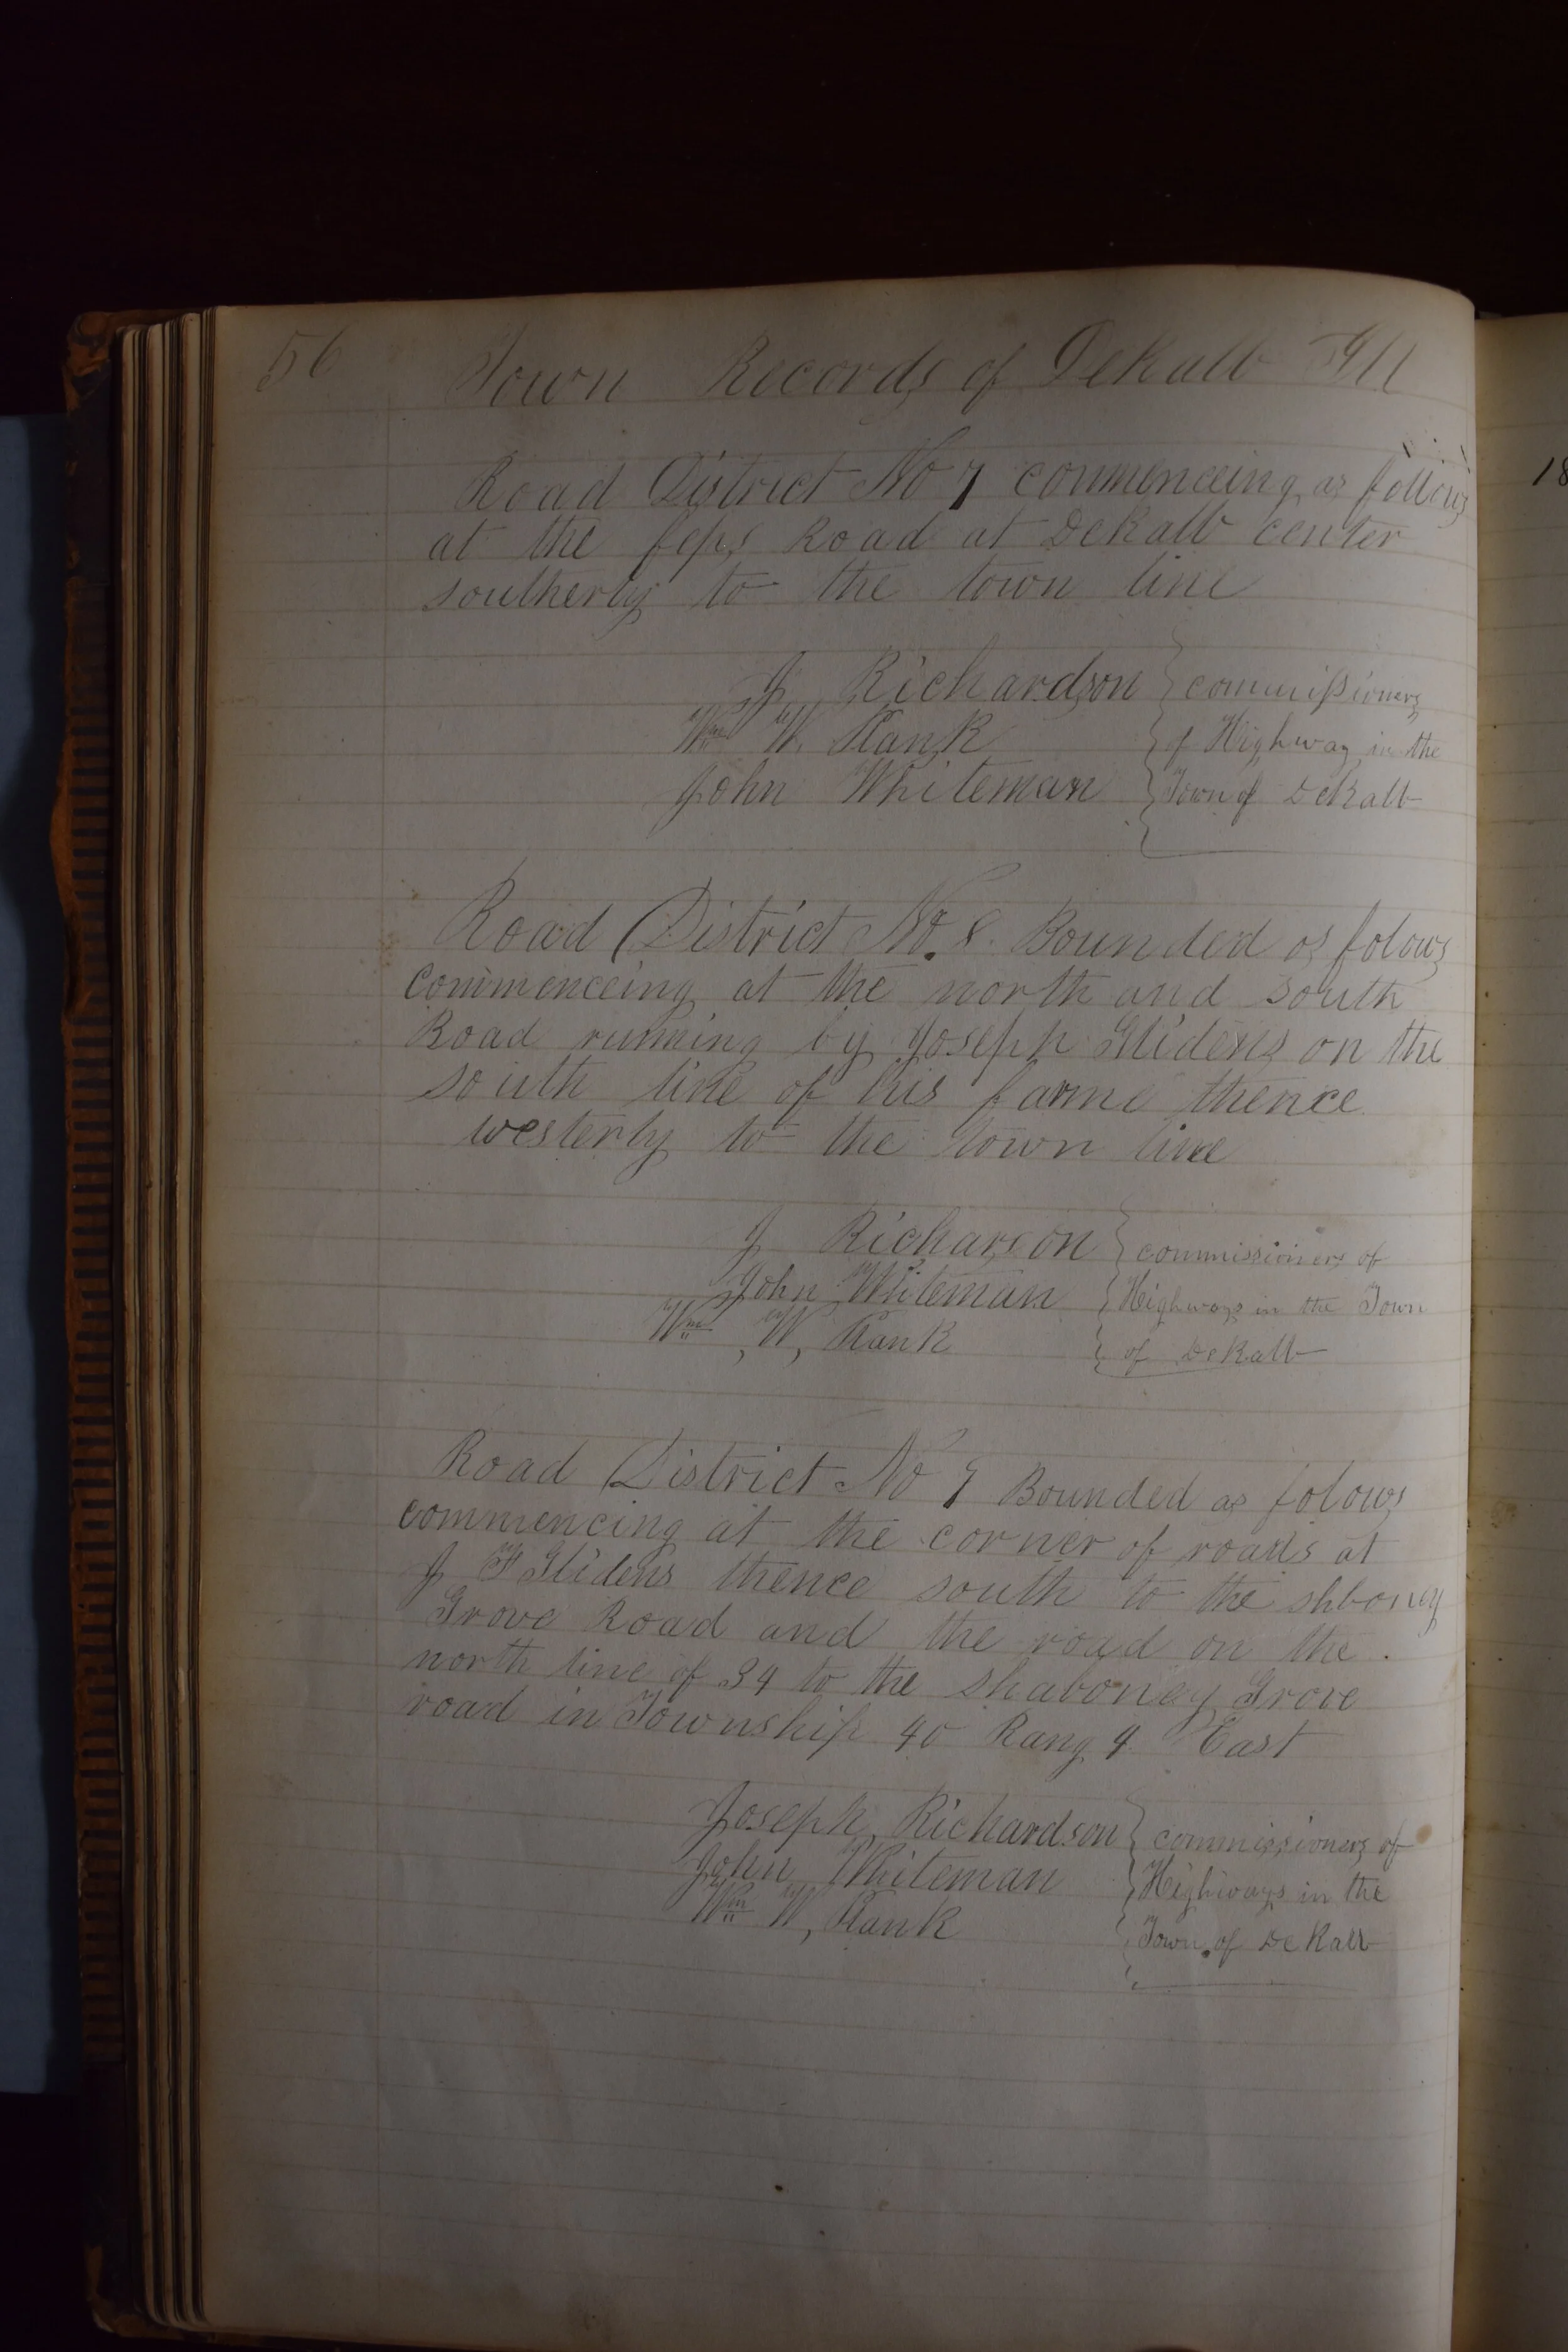 56 Town Records of DeKalb Ill
Road District No 7 commenceing as follows
at the Road at DeKalb center
southerly to the town line
J Richardson } commissioners
Wm W. Plank } of Highway in the
John Whiteman } Town of DeKalb
Road District No. 8. Bounded as folows
commenceing at the north and south
Road running by Joseph Glidens on the
south line of his farme thence
westerly to the town line
J Richarson } commissioners of
John Whiteman } Highways in the Town
Wm , W, Plank } of DeKalb
Road District No 9 Bounded as folows
commencing at the corner of roads at
J F Glidens thence south to the shboney
Grove Road and the road on the
north line of 34 to the shaboney Grove
road in Township 40 Rang 4 East
Joseph Richardson } commissioners of
John Whiteman } Highways in the
Wm W, Plank } Town of DeKalb
18